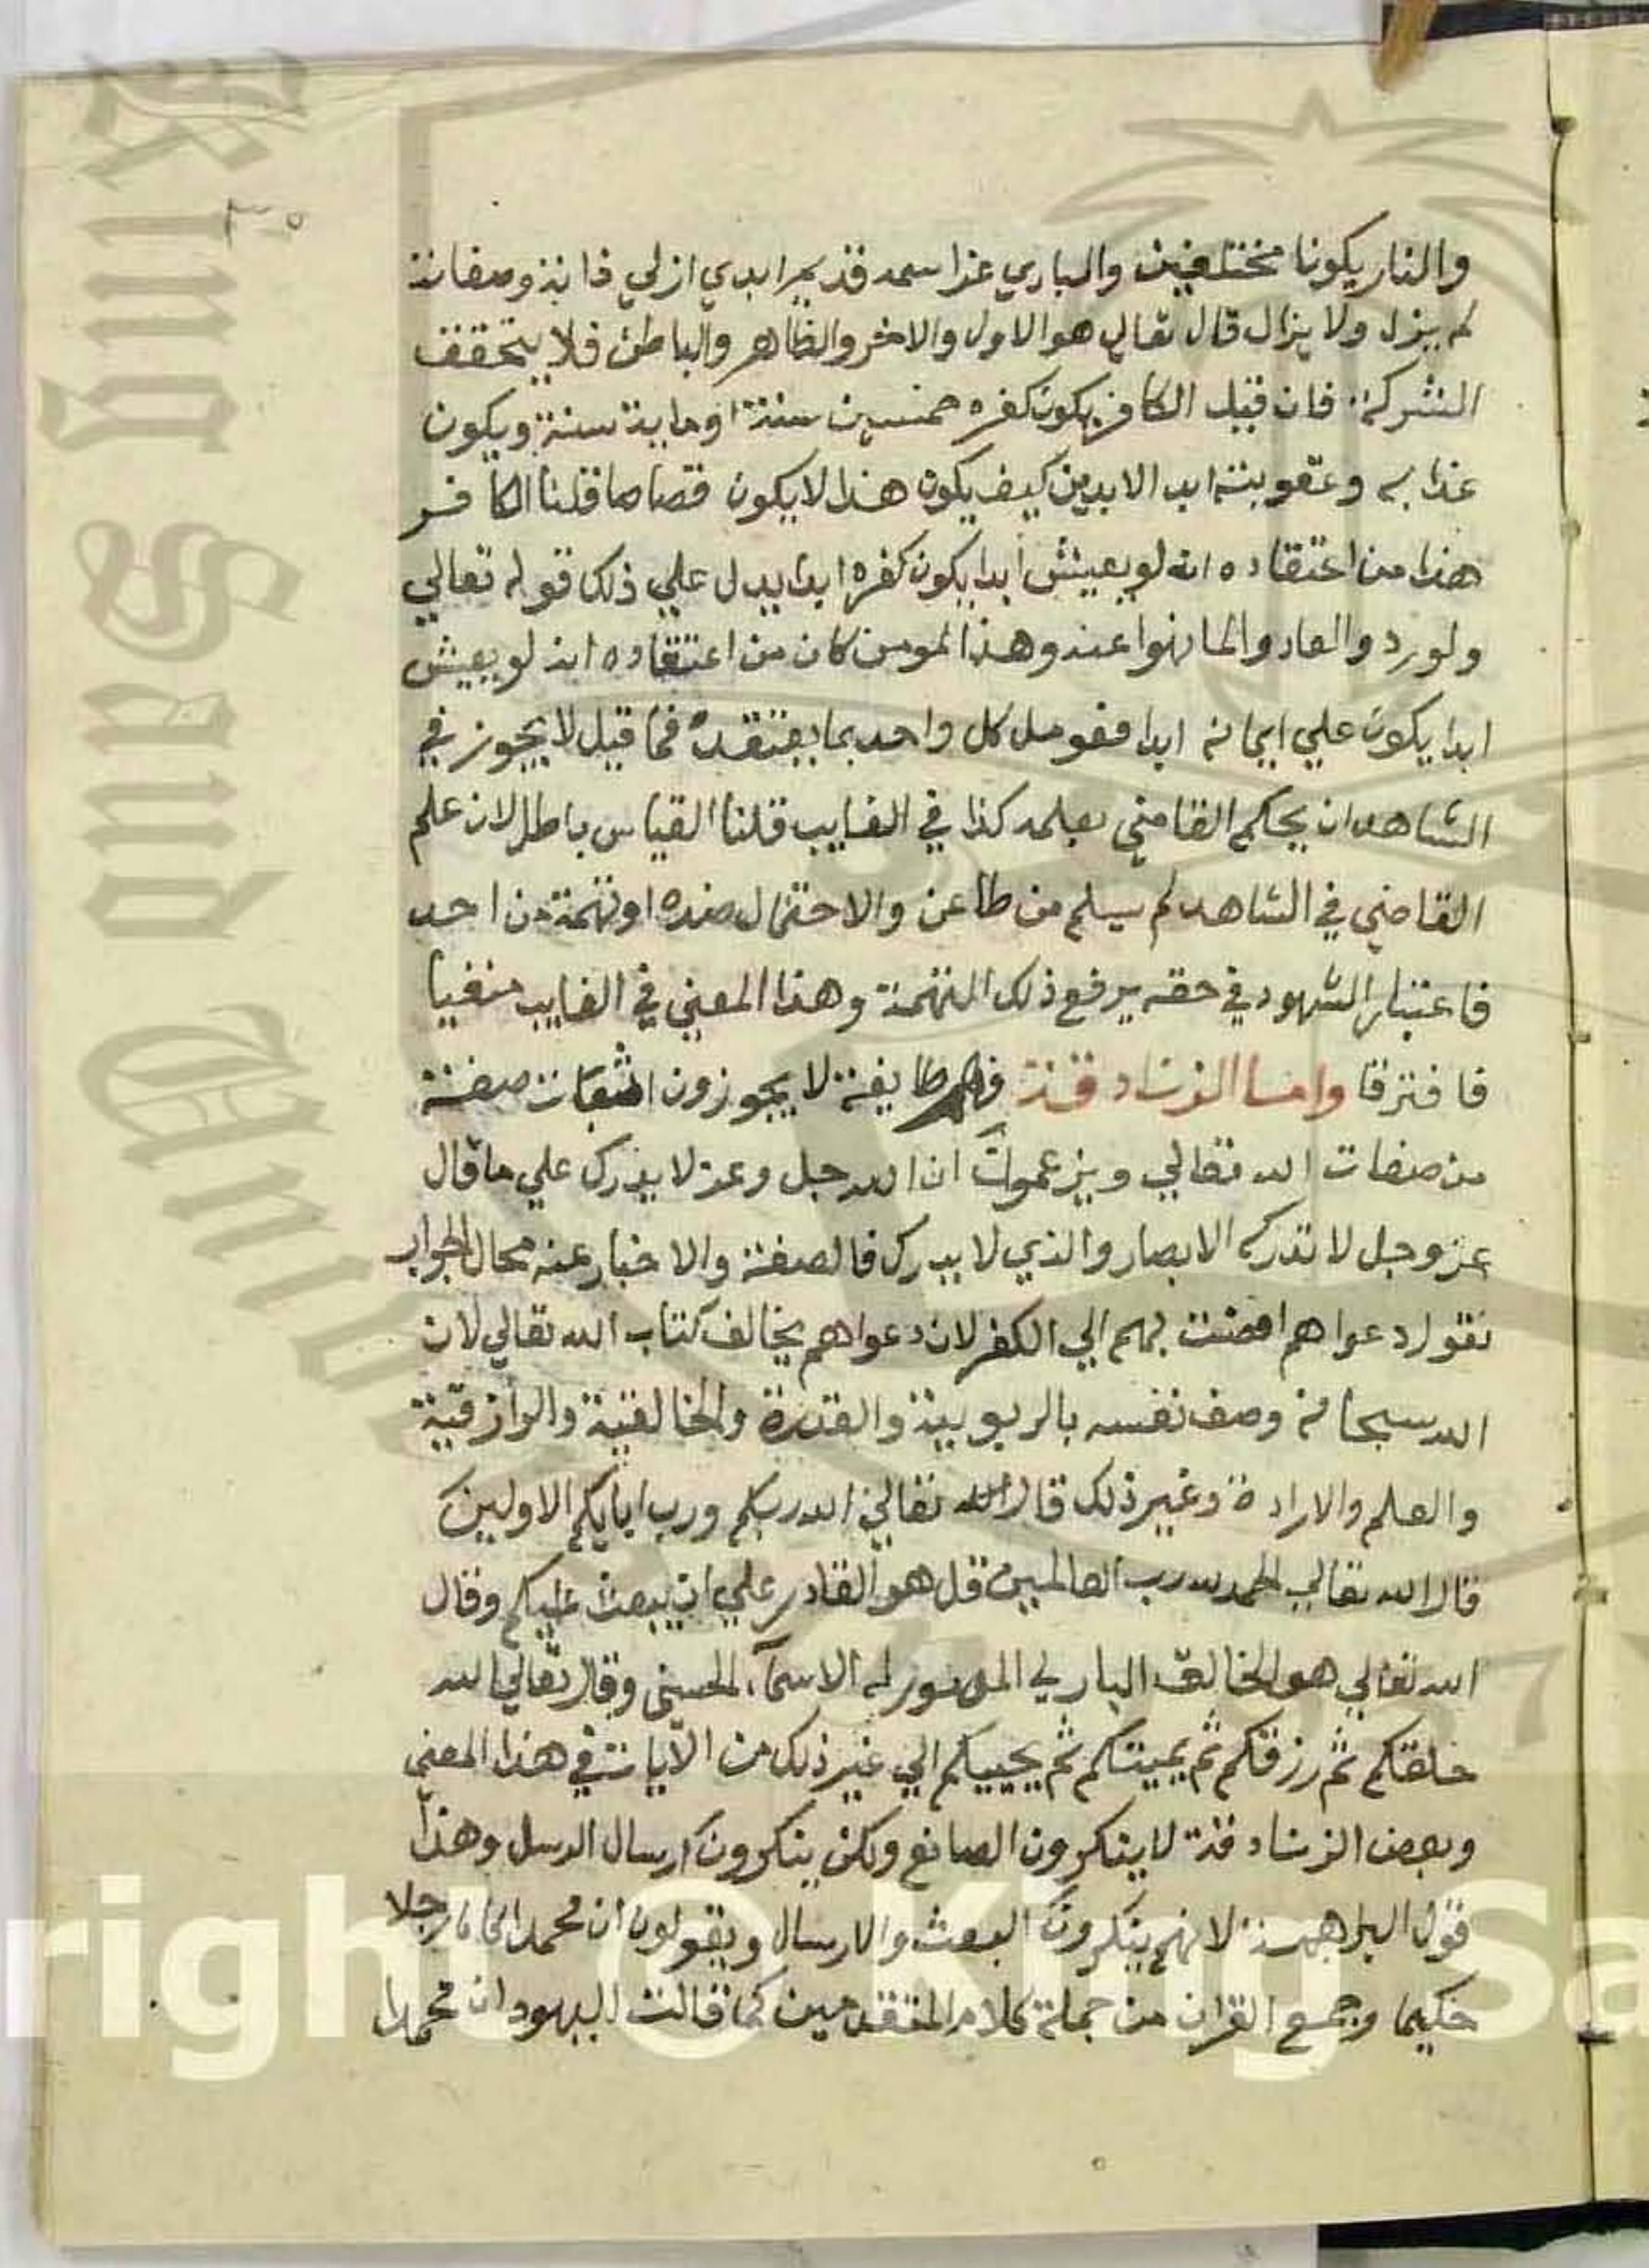 والنار يكونا مختلفين والباري عز اسمه قديم ابدي ازلي ذاته وصفاته
لم يزل ولا يزال قال تعالي هو الاول والاخر والظاهر والباطن فلا يتحقق
الشركة فان قيل الكافر يكون كفره خمسين سنة او ماية سنة ويكون
عذابه وعقوبته ابد الابدين كيف يكون هذا لا يكون قصاصا قلنا الكافر
هذا من اعتقاده انه لو يعيش ابدا يكون كفره ابدا يدل علي ذلك قوله تعالي
ولو ردوا لعادوا لما نهوا عنه وهذا المومن كان من اعتقاده انه لو يعيش
ابدا يكون علي ايمانه ابدا فعومل كل واحد بما يعتقده فما قيل لا يجوز في
الشاهد ان يحكم القاضي بعلمه كذا في الغايب قلنا القياس باطل لان علم
القاضي في الشاهد لم يسلم من طاعن والاحتمال ضده او تهمة من احد
فاعتبار الشهود في حقه يرفع ذلك التهمة وهذا المعني في الغايب منفيا
فافترقا واما الزنادقة فهم طايفة لا يجوزون اثبات صفة
من صفات الله تعالي ويزعمون ان الله جل وعز لا يدرك علي ما قال
عز وجل لا تدركه الابصار والذي لا يدرك فالصفة والاخبار عنه محال الجواب
نقول دعواهم افضت بهم الي الكفر لان دعواهم يخالف كتاب الله تعالي لان
الله سبحانه وصف نفسه بالربوبية والقدرة والخالقية والرازقية
والعلم والارادة وغير ذلك قال الله تعالي الله ربكم ورب ابايكم الاولين
قال الله تعالي الحمد لله رب العالمين قل هو القادر علي ان يبعث عليكم وقال
الله تعالي هو الخالق الباري المصور له الاسمآء الحسني وقال تعالي الله
خلقكم ثم رزقكم ثم يميتكم ثم يحييكم الي غير ذلك من الايات في هذا المعني
وبعض الزنادقة لا ينكرون الصانع ولكن ينكرون ارسال الرسل وهذا
قول البراهمة لانهم ينكرون البعث والارسال ويقولون ان محمدا كان رجلا
حكيما وجمع القران من جملة كلام المتقدمين كما قالت اليهود ان محمدا
King Saud
right © King Sa